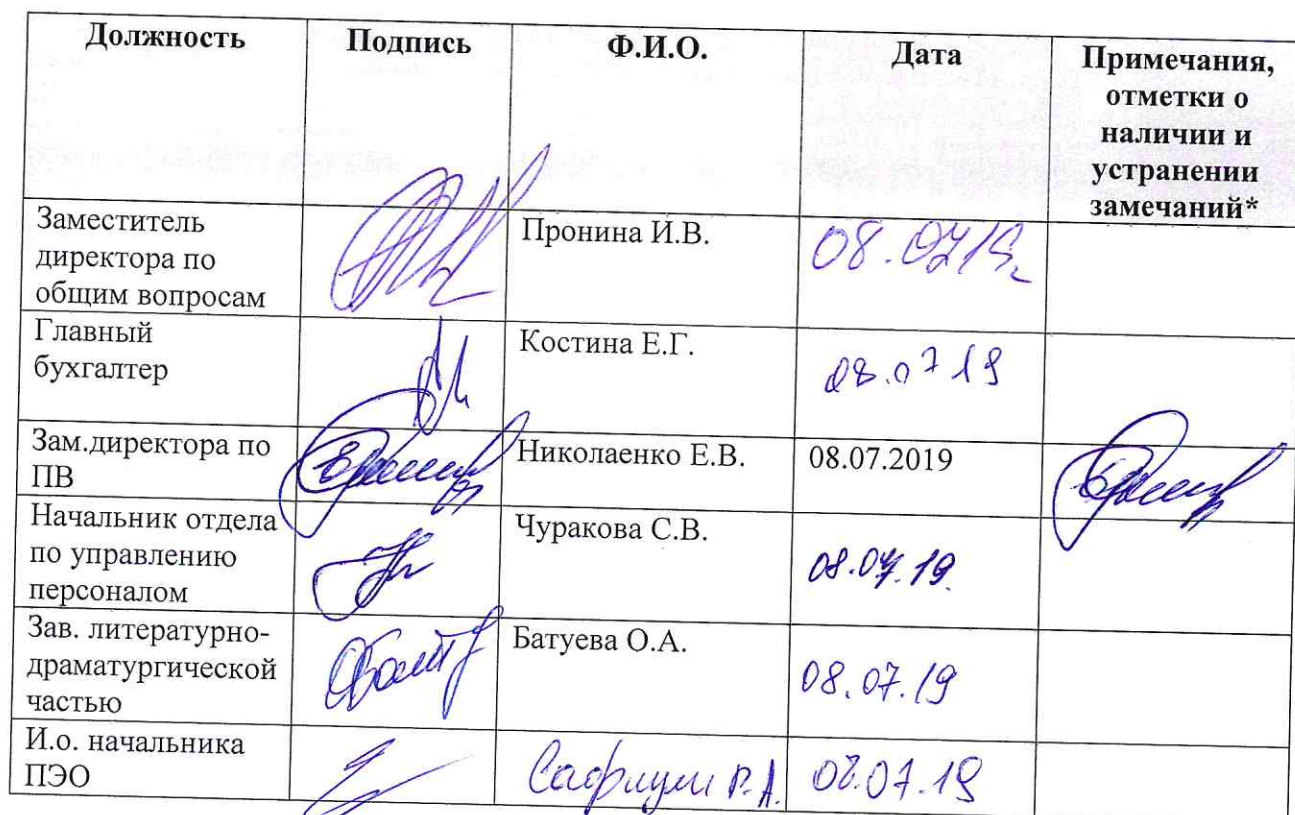 Должность Подпись Ф.И.О. Дата Примечания,
отметки о
наличии и
устранении
замечаний*
Заместитель
директора по
общим вопросам
Пронина И.В.
08.07.19г
Главный
бухгалтер
Костина Е.Г.
08.07 19
Зам.директора по
ПВ
Николаенко Е.В.
08.07.2019
Начальник отдела
по управлению
персоналом
Чуракова С.В.
08.07.19.
Зав. литературно-
драматургической
частью
Батуева О.А.
08.07.19
И.о. начальника
ПЭО
Р.А.
08.07.19